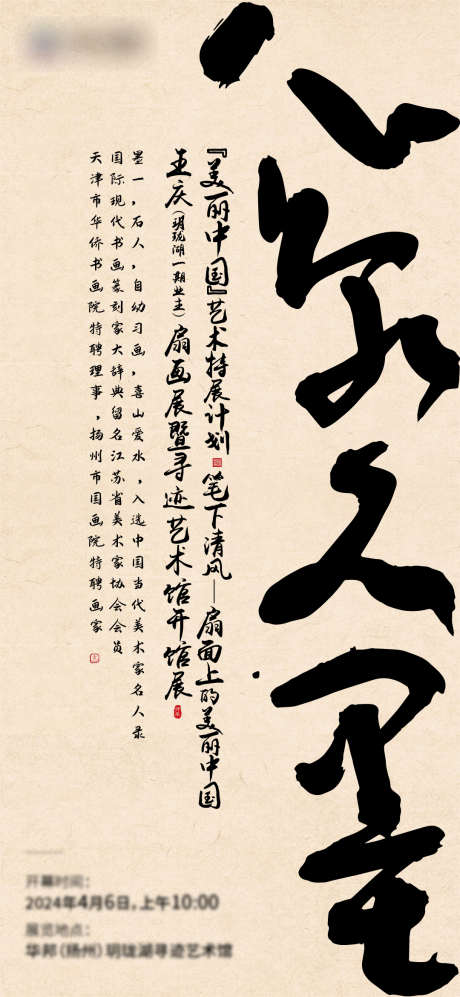 『美丽中国』艺术特展计划 笔下清风——扇面上的美丽中国
王庆(玥珑湖一期业主)扇画展暨寻迹艺术馆开馆展
墨一,石人,自幼习画,喜山爱水,入选中国当代美术家名人录
国际现代书画篆刻家大辞典留名江苏省美术家协会会员
天津市华侨书画院特聘理事,扬州市国画院特聘画家
开幕时间:
2024年4月6日,上午10:00
展览地点:
华邦(扬州)玥珑湖寻迹艺术馆